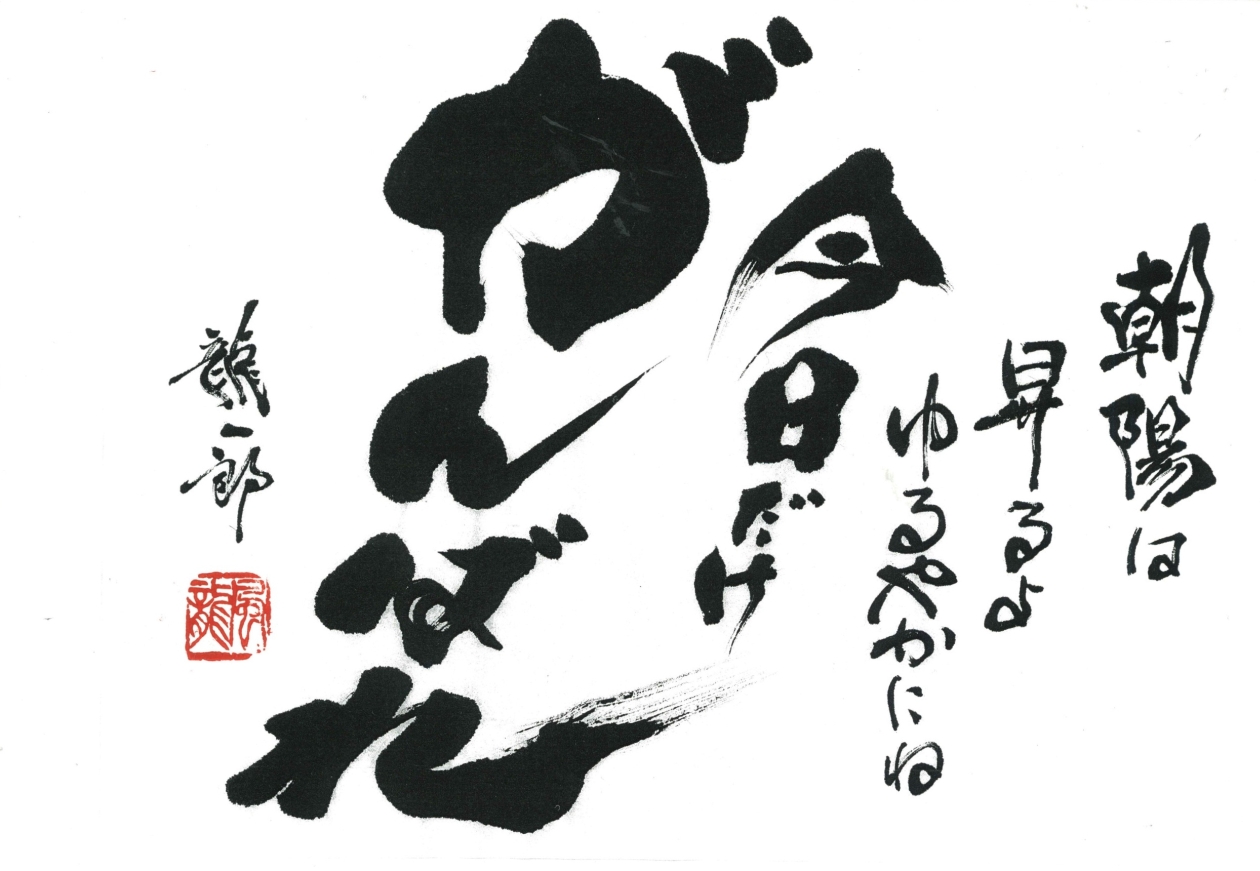 朝陽は
昇るよ
ゆるやかにね
今日だけ
がんばれ
龍一郎
風龍